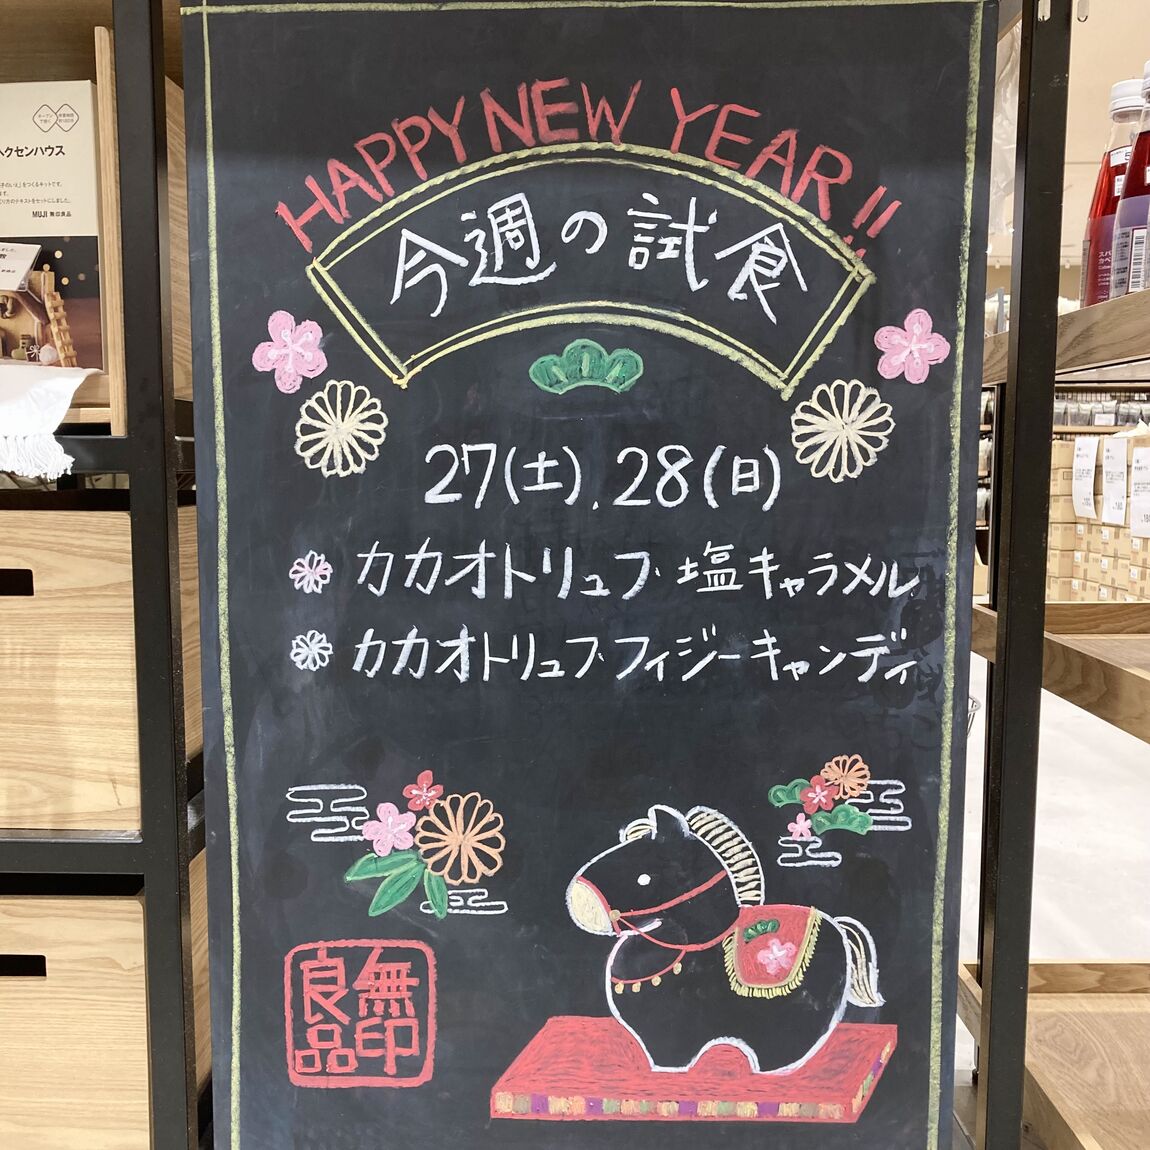 HAPPY NEW YEAR!!
今週の試食
27(土). 28(日)
カカオトリュフ 塩キャラメル
カカオトリュフ フィジーキャンディ
無印
良品
ヘクセンハウス
MUJI 無印良品